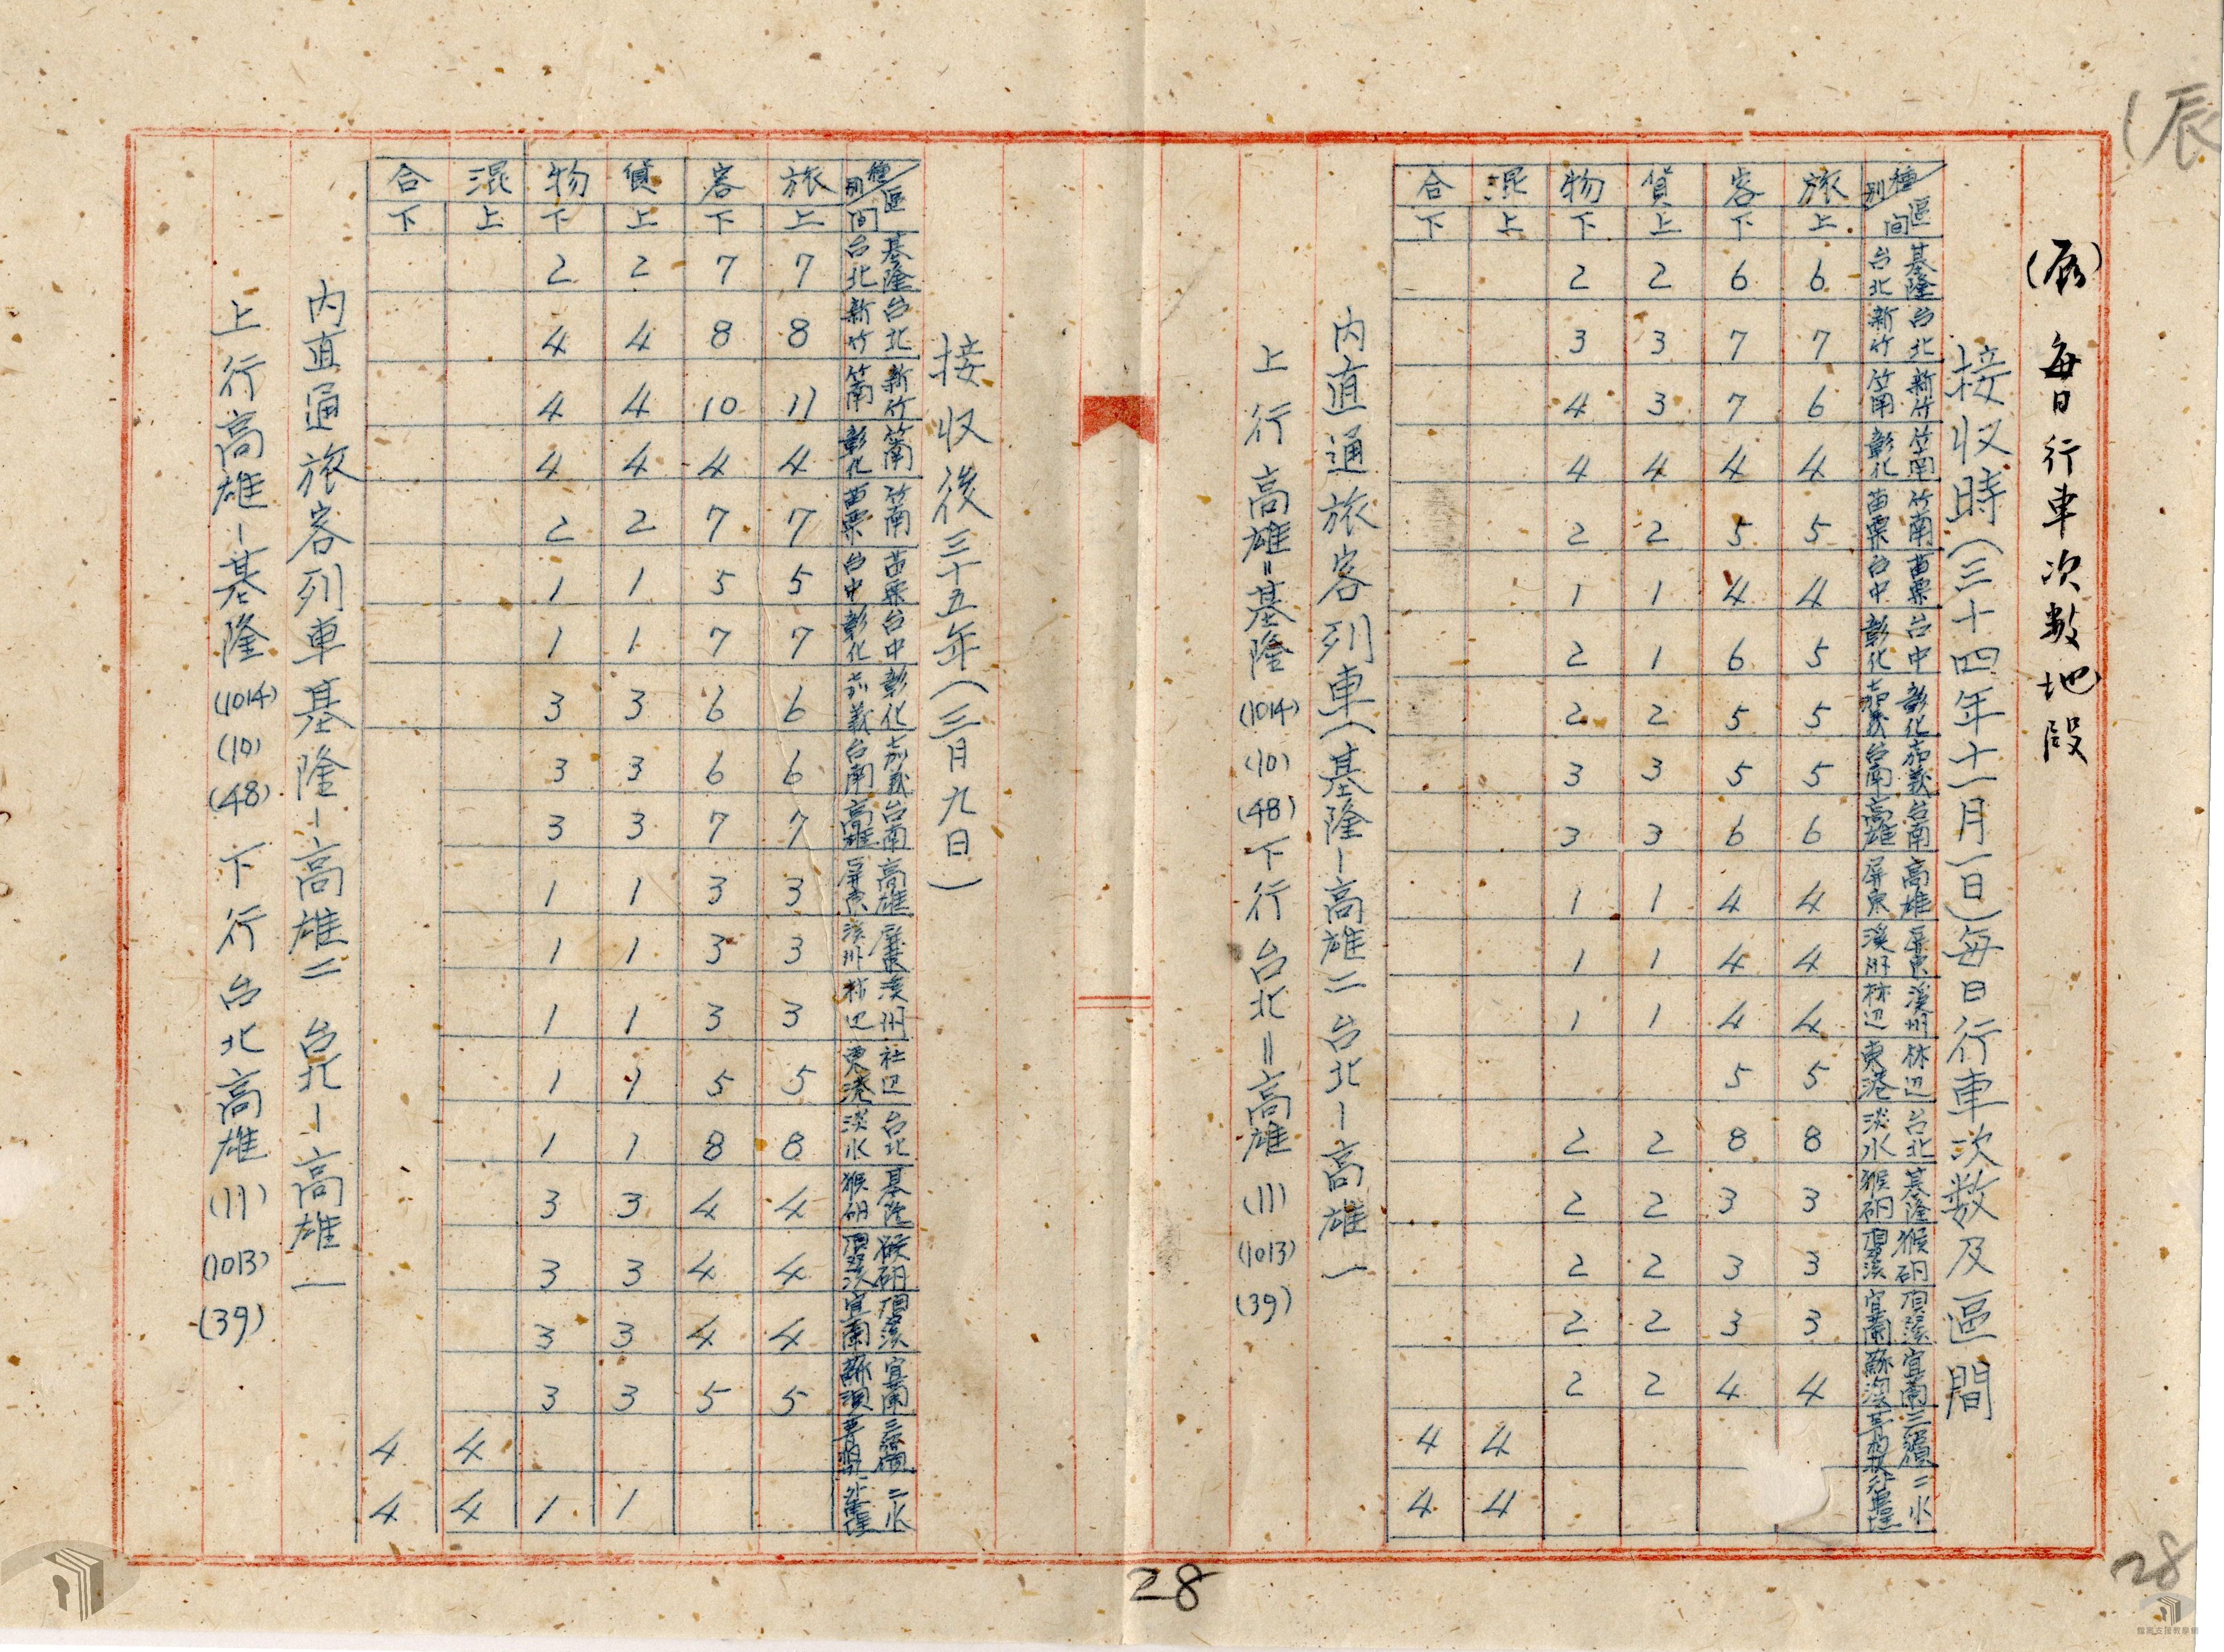 (辰)
(辰) 每日行車次數地段
接收時(三十四年十一月一日)每日行車次数及區間
種別 區間 旅客 貨物 混合
上 下 上 下 上 下
基隆 台北 6 6 2 2
台北 新竹 7 7 3 3
新竹 竹南 6 7 3 4
竹南 彰化 4 4 4 4
竹南 苗栗 5 5 2 2
苗栗 台中 4 4 1 1
台中 彰化 5 6 1 2
彰化 嘉義 5 5 2 2
嘉義 台南 5 5 3 3
台南 高雄 6 6 3 3
高雄 屏東 4 4 1 1
屏東 溪州 4 4 1 1
溪州 林辺 4 4 1 1
林辺 東港 5 5
台北 淡水 8 8 2 2
基隆 猴硐 3 3 2 2
猴硐 頂溪 3 3 2 2
頂溪 宜蘭 3 3 2 2
宜蘭 蘇澳 4 4 2 2
三貂嶺 4 4
二水 外車埕 4 4
内直通旅客列車(基隆-高雄二 台北-高雄一
上行高雄=基隆(1014)(10)(48)下行台北=高雄(11)(1013)(39)
接収後三十五年(三月九日)
種別 區間 旅客 貨物 混合
上 下 上 下 上 下
基隆 台北 7 7 2 2
台北 新竹 8 8 4 4
新竹 竹南 11 10 4 4
竹南 彰化 4 4 4 4
竹南 苗栗 7 7 2 2
苗栗 台中 5 5 1 1
台中 彰化 7 7 1 1
彰化 嘉義 6 6 3 3
嘉義 台南 6 6 3 3
台南 高雄 7 7 3 3
高雄 屏東 3 3 1 1
屏東 溪州 3 3 1 1
溪州 林辺 3 3 1 1
社辺 東港 5 5 1 1
台北 淡水 8 8 1 1
基隆 猴硐 4 4 3 3
猴硐 頂溪 4 4 3 3
頂溪 宜蘭 4 4 3 3
宜蘭 蘇澳 5 5 3 3
三貂嶺 4 4
二水 外車埕 1 1 4 4
内直通旅客列車基隆-高雄二 台北-高雄一
上行高雄-基隆(1014)(10)(48)下行台北高雄(11)(1013)(39)
28
28
檔案支援教學網